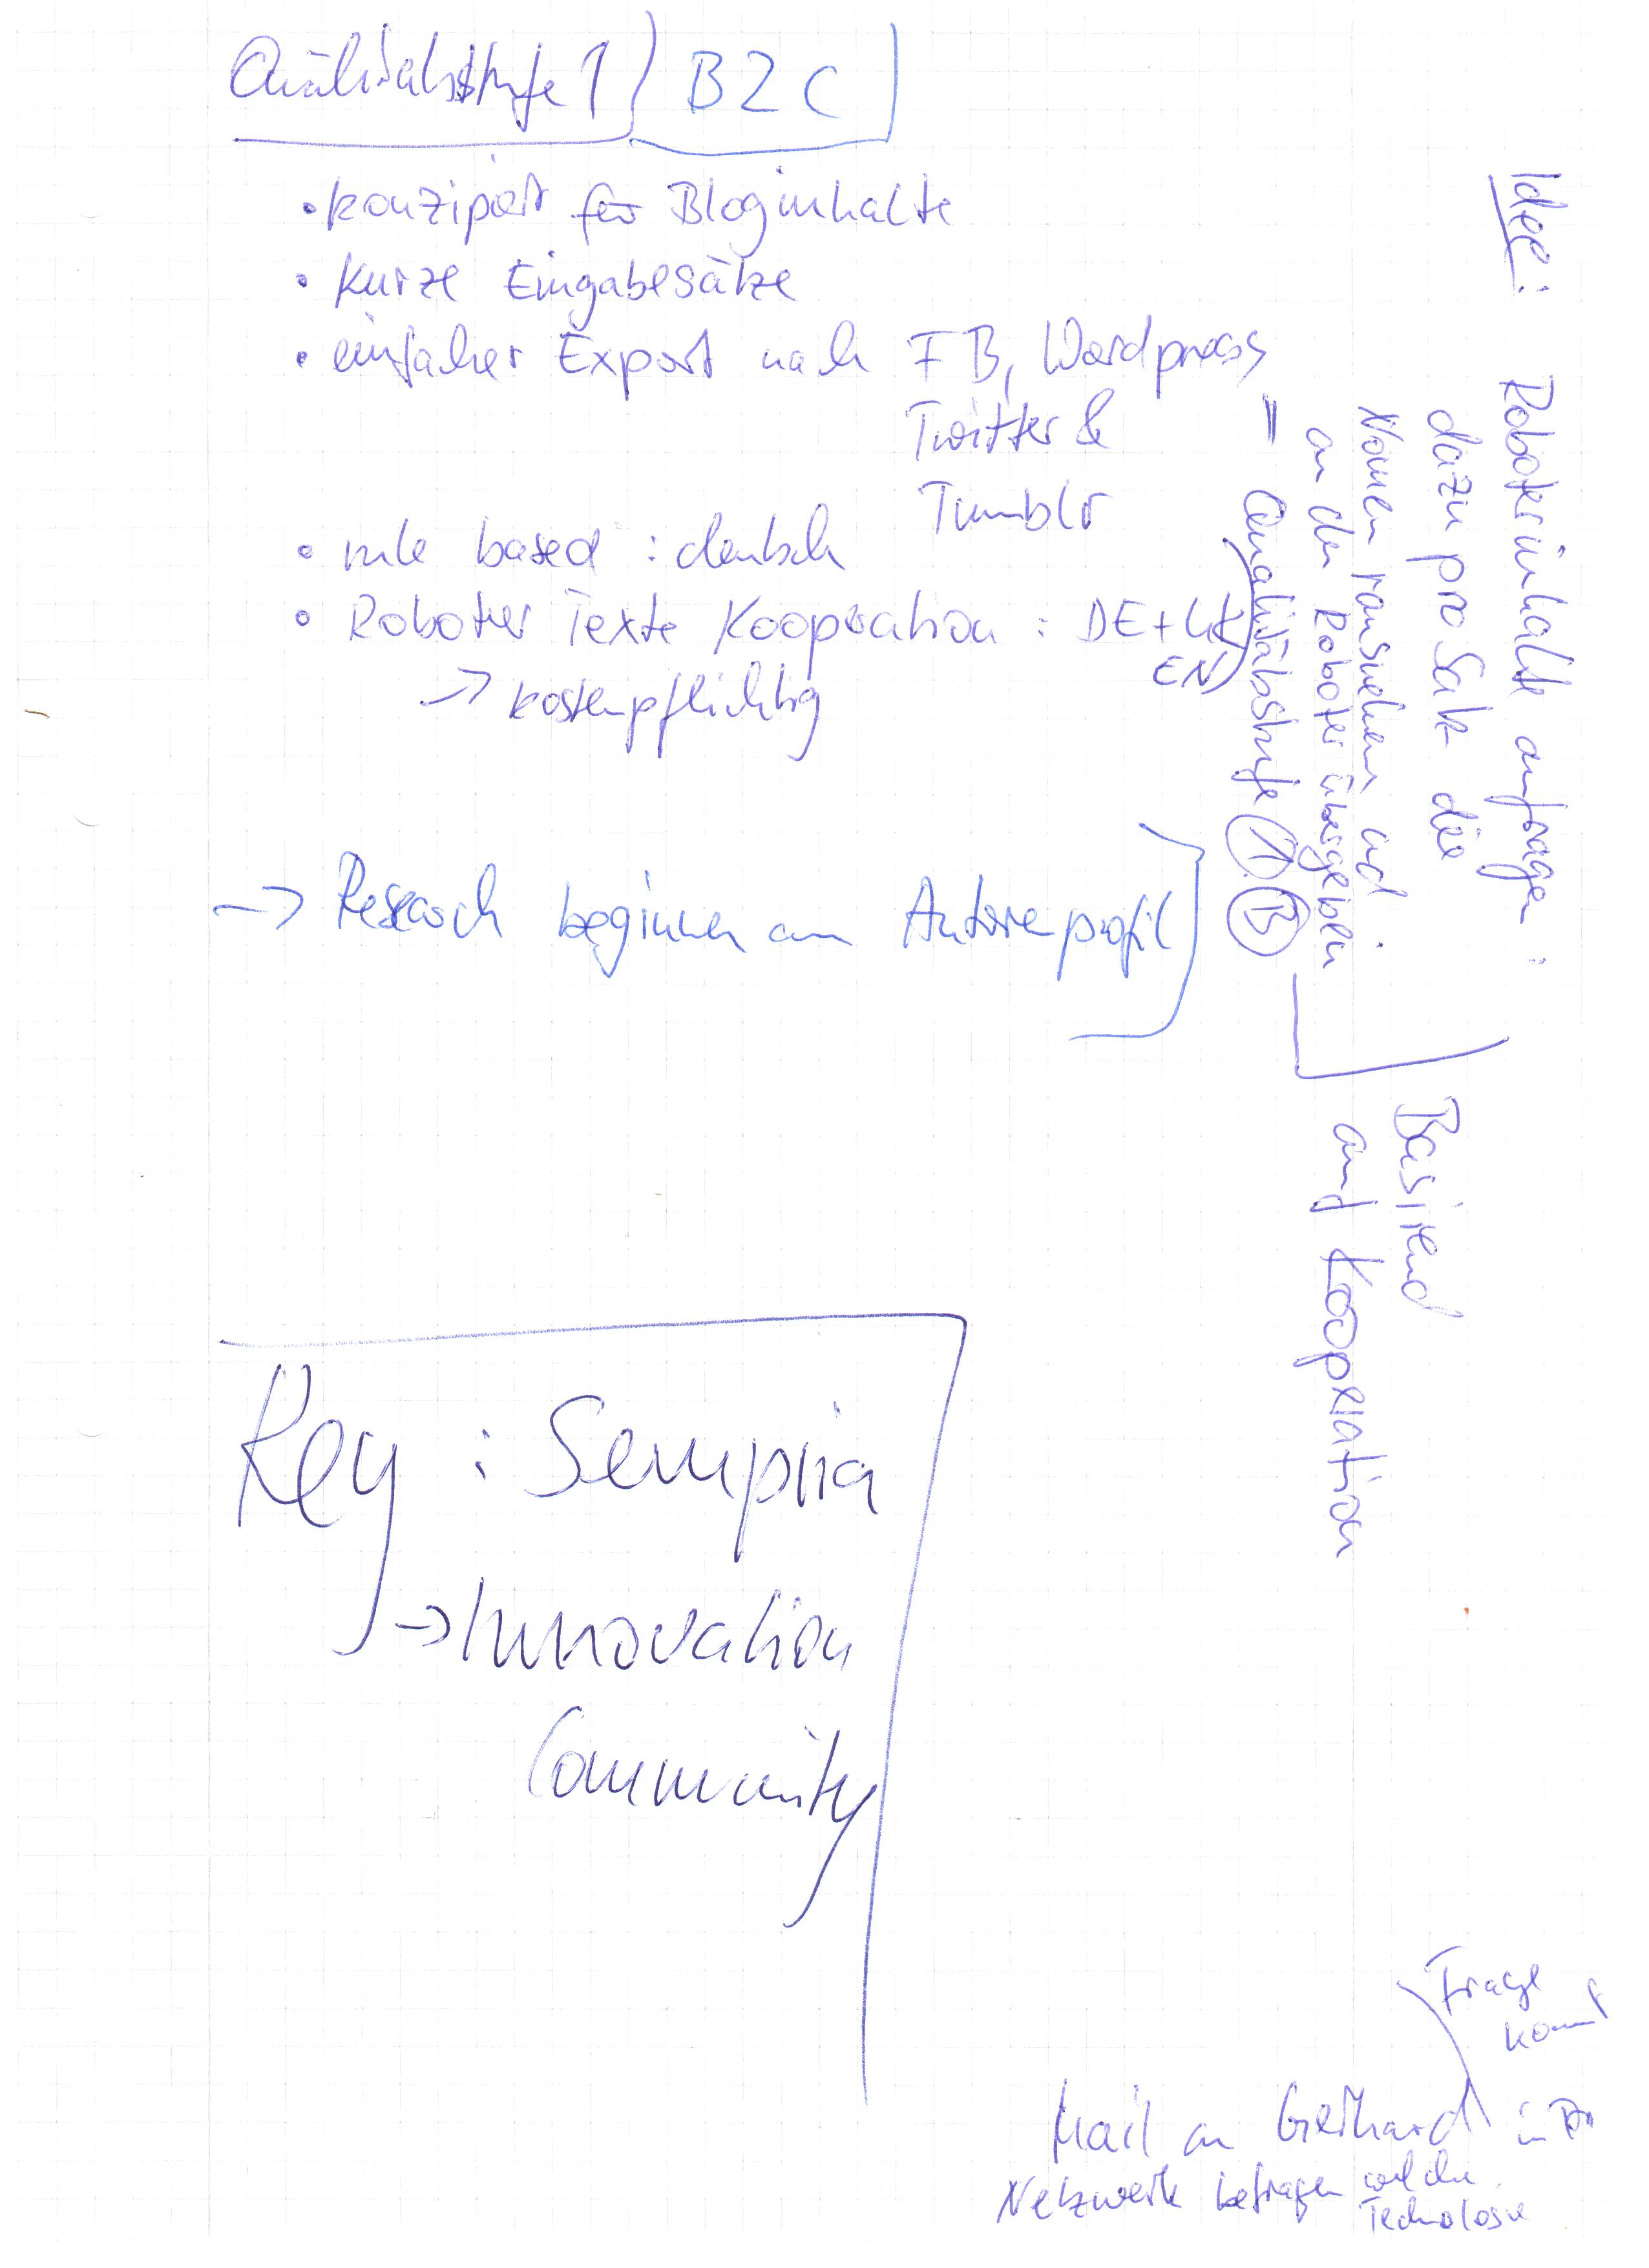 Qualitätsstufe 1 B2C
• konzipiert für Bloginhalte
• kurze Eingabesätze
• einfacher Export nach FB, Wordpress
Twitter &
Tumblr
• rule based : deutsch
• Roboter Texte Kooperation : DE +
EN
→ kostenpflichtig
→ Research beginnen am Autorenprofil
Idee: Roboterinhalte anfragen :
dazu pro Satz die
Nomen raussuchen und
an den Roboter übergeben
= Qualitätsstufe 1. B
Basirend
auf Kooperation
Key : Sempria
→ Innovation
Community
Frage
kommt
in
Mail an Gerhard
Netzwerk befragen welche
Technologie